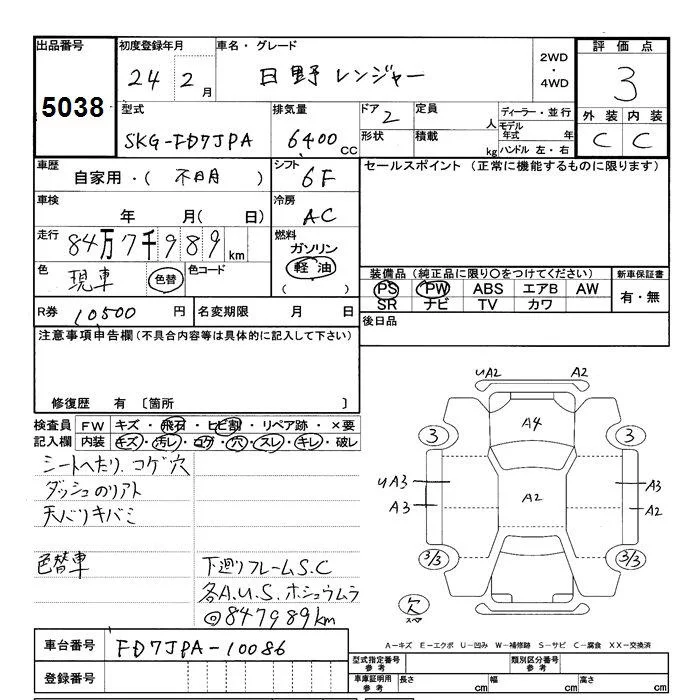 出品番号
5038
初度登録年月
24 2月
車名・グレード
日野レンジャー
2WD
・
4WD
評価点
3
外装 内装
C C
型式
SKG-FD7JPA
排気量
6400cc
ドア 2
形状
定員 人
積載 kg
ディーラー・並行
モデル年式 年
ハンドル 左・右
車歴
自家用・( 不明 )
シフト
6F
セールスポイント (正常に機能するものに限ります)
車検
年 月( 日)
冷房
AC
走行
84万7千989km
燃料
ガソリン
軽油
( )
色
現車 色替
色コード
装備品 (純正品に限り○をつけてください)
PS PW ABS エアB AW
SR ナビ TV カワ
新車保証書
有・無
R券 10,500円
名変期限 月 日
後日品
注意事項申告欄 (不具合内容等は具体的に記入して下さい)
修復歴 有 〔箇所 〕
検査員記入欄
FW キズ・飛石・ヒビ割・リペア跡・×要
内装 キズ・汚レ・コゲ・穴・スレ・キレ・破レ
シートへたり、コゲ穴
ダッシュのリアト
天バリキバミ
色替車
下廻りフレームS.C
各A.U.S.ホシュウムラ
◎847989km
uA2 A2
A4
3 3
uA3 A3
A3 A2
A2
3/3 3/3
欠
スペア
A-キズ E-エクボ U-凹み W-補修跡 S-サビ C-腐食 XX-交換済
車台番号
FD7JPA-10086
登録番号
型式指定番号 参考
類別区分番号 参考
車庫証明用 参考
長さ cm 幅 cm 高さ cm